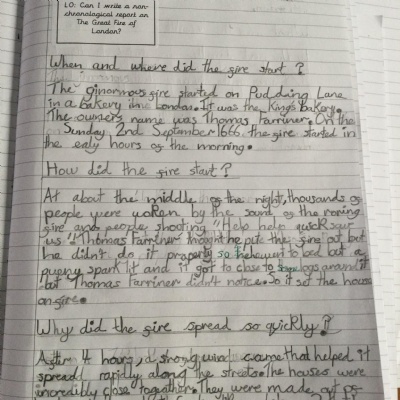 LO: Can I write a non-
chronological report on
The Great Fire of
London?
When and where did the fire start?
The ginormous fire started on Pudding Lane
in a bakery in London. It was the King's bakery.
The owners name was Thomas Farriner. On the
Sunday 2nd September 1666 the fire started in
the ealy hours of the morning.
How did the fire start?
At about the middle of the night, thousands of
people were woken by the sound of the roring
fire and people shooting "Help help quick save
us". Thomas Farriner thought he put the fire out but
he didn't do it properly so he went to bed but a
puny spark lit and it got to close to logs around it
but Thomas Farriner didn't notice. So it set the house
on fire.
Why did the fire spread so quickly?
After 4 hours, a strong wind came that helped it
spread rapidly along the streets. The houses were
incredibly close together. They were made out of